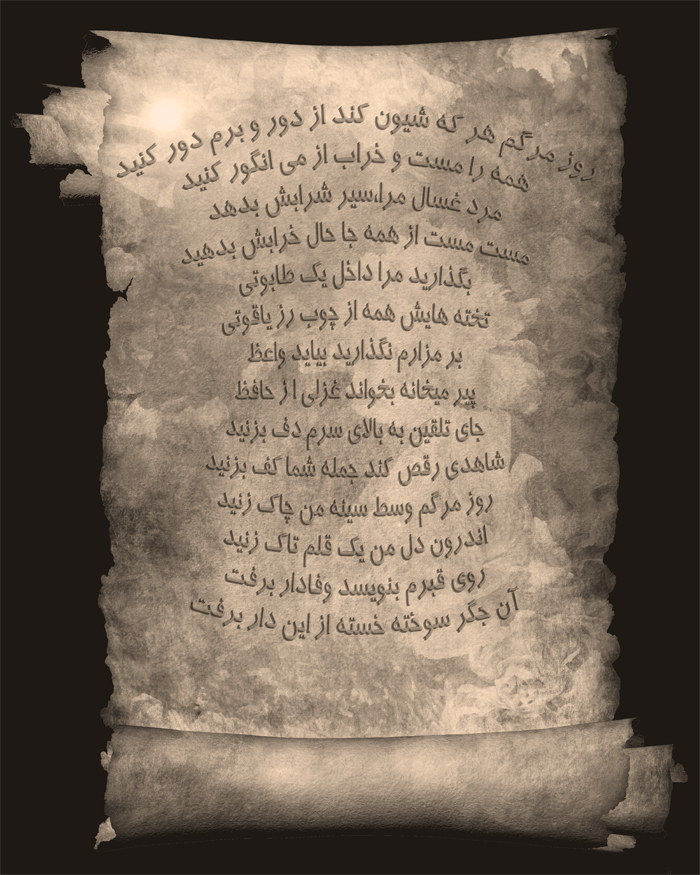 روز مرگم هر که شیون کند از دور و برم دور کنید
همه را مست و خراب از می انگور کنید
مرد غسال مرا،سیر شرابش بدهد
مست مست از همه جا حال خرابش بدهید
بگذارید مرا داخل یک طابوتی
تخته هایش همه از چوب رز یاقوتی
بر مزارم نگذارید بیاید واعظ
پیر میخانه بخواند غزلی از حافظ
جای تلقین به بالای سرم دف بزنید
شاهدی رقص کند جمله شما کف بزنید
روز مرگم وسط سینه من چاک زنید
اندرون دل من یک قلم تاک زنید
روی قبرم بنویسد وفادار برفت
آن جگر سوخته خسته از این دار برفت